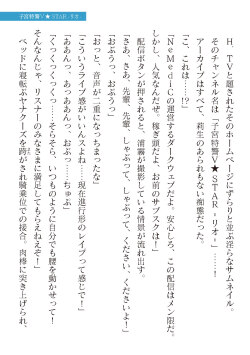 子宮特警V★STAR リオ
H．TVと題されたそのホームページにずらりと並ぶ淫らなサムネイル。
そのチャンネル名は「子宮特警V★STAR - リオ -」……！
アーカイブはすべて、莉生のあられもない痴態だった。
「こ、これは……!?」
「NeMediCの運営するダークウェブだよ。安心しろ、この配信はメン限だ。
しかし、人気なんだぜ。稼ぎ頭だよ、お前のサブスクは！」
配信ボタンが押されると、浦霧が撮影している情景が流れ出す。
「さあ、さあ、先輩、先輩、しゃぶって、しゃぶって、ください、くださいよぉ！」
「おぶっ、おぶうっ」
「おっと、音声が二重になっちまったな」
「こういうライブ感がいいんスよね……現在進行形のレイプって感じで！」
「ああんっ、あぁっ、おぶっ……ちゅぶ」
「くっくっくっ……そらそら、いつものように自分でも腰を動かせっ！
そんなんじゃ、リスナーのみなさまに満足してもらえねえぞ！」
ベッドに寝転ぶヤナクーズを跨がされ騎乗位での接合。肉棒に突き上げられ、